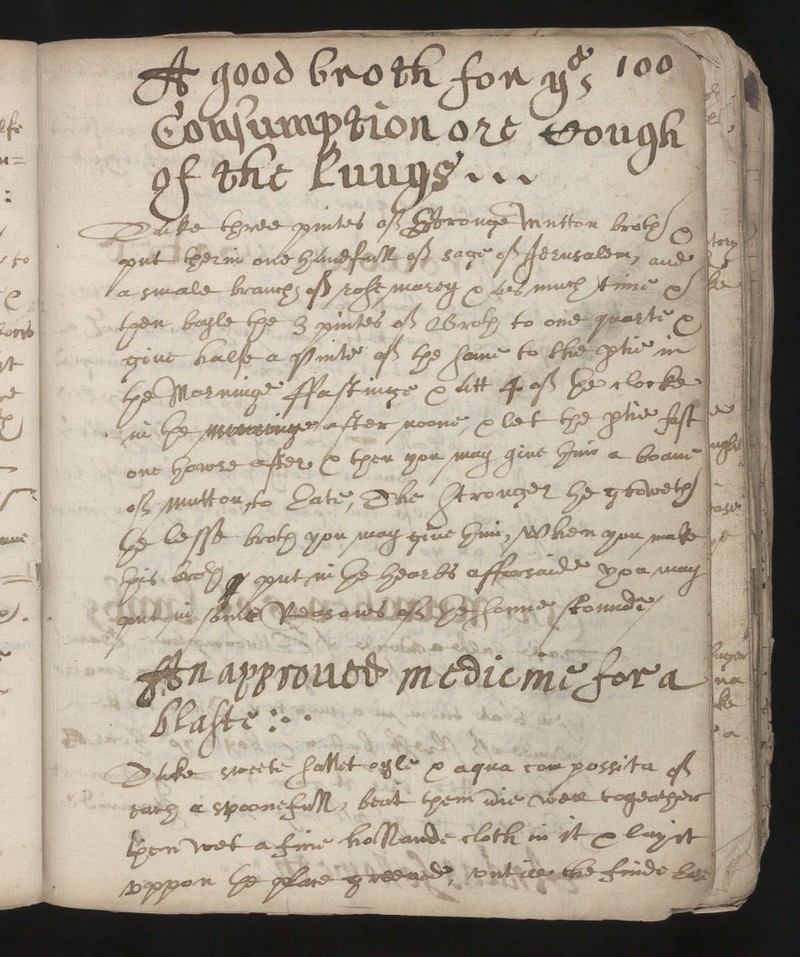 A good broth for ye 100
Consumption ore Cough
of the Lungs...
Take three pintes off Stronge Mutton broth &
put therin one handfull off sage off Jerusalem, and
a smale branch off rosse marey & as much time &
then boyle the 3 pintes off Broth to one quarte &
give halfe a pinte off the same to the ptie in
the Morninge ffastinge & att 4 off the clocke
in the after noone, & let the ptie fast
one howre after & then you may give him a boane
off Mutton to eate, The Stronger he groweth
the lesse broth you may give him, When you make
this broth put in the hearbs afforsaide you may
put in some Reasones off the sonne stonnde
An approved medicine for a
blaste:..
Take sweete sallet oyle & aqua compossita off
each a spoonefull, beat them well togeather
then wet a fine hollande cloth in it & lay it
uppon the place greeved, untill the finde ease